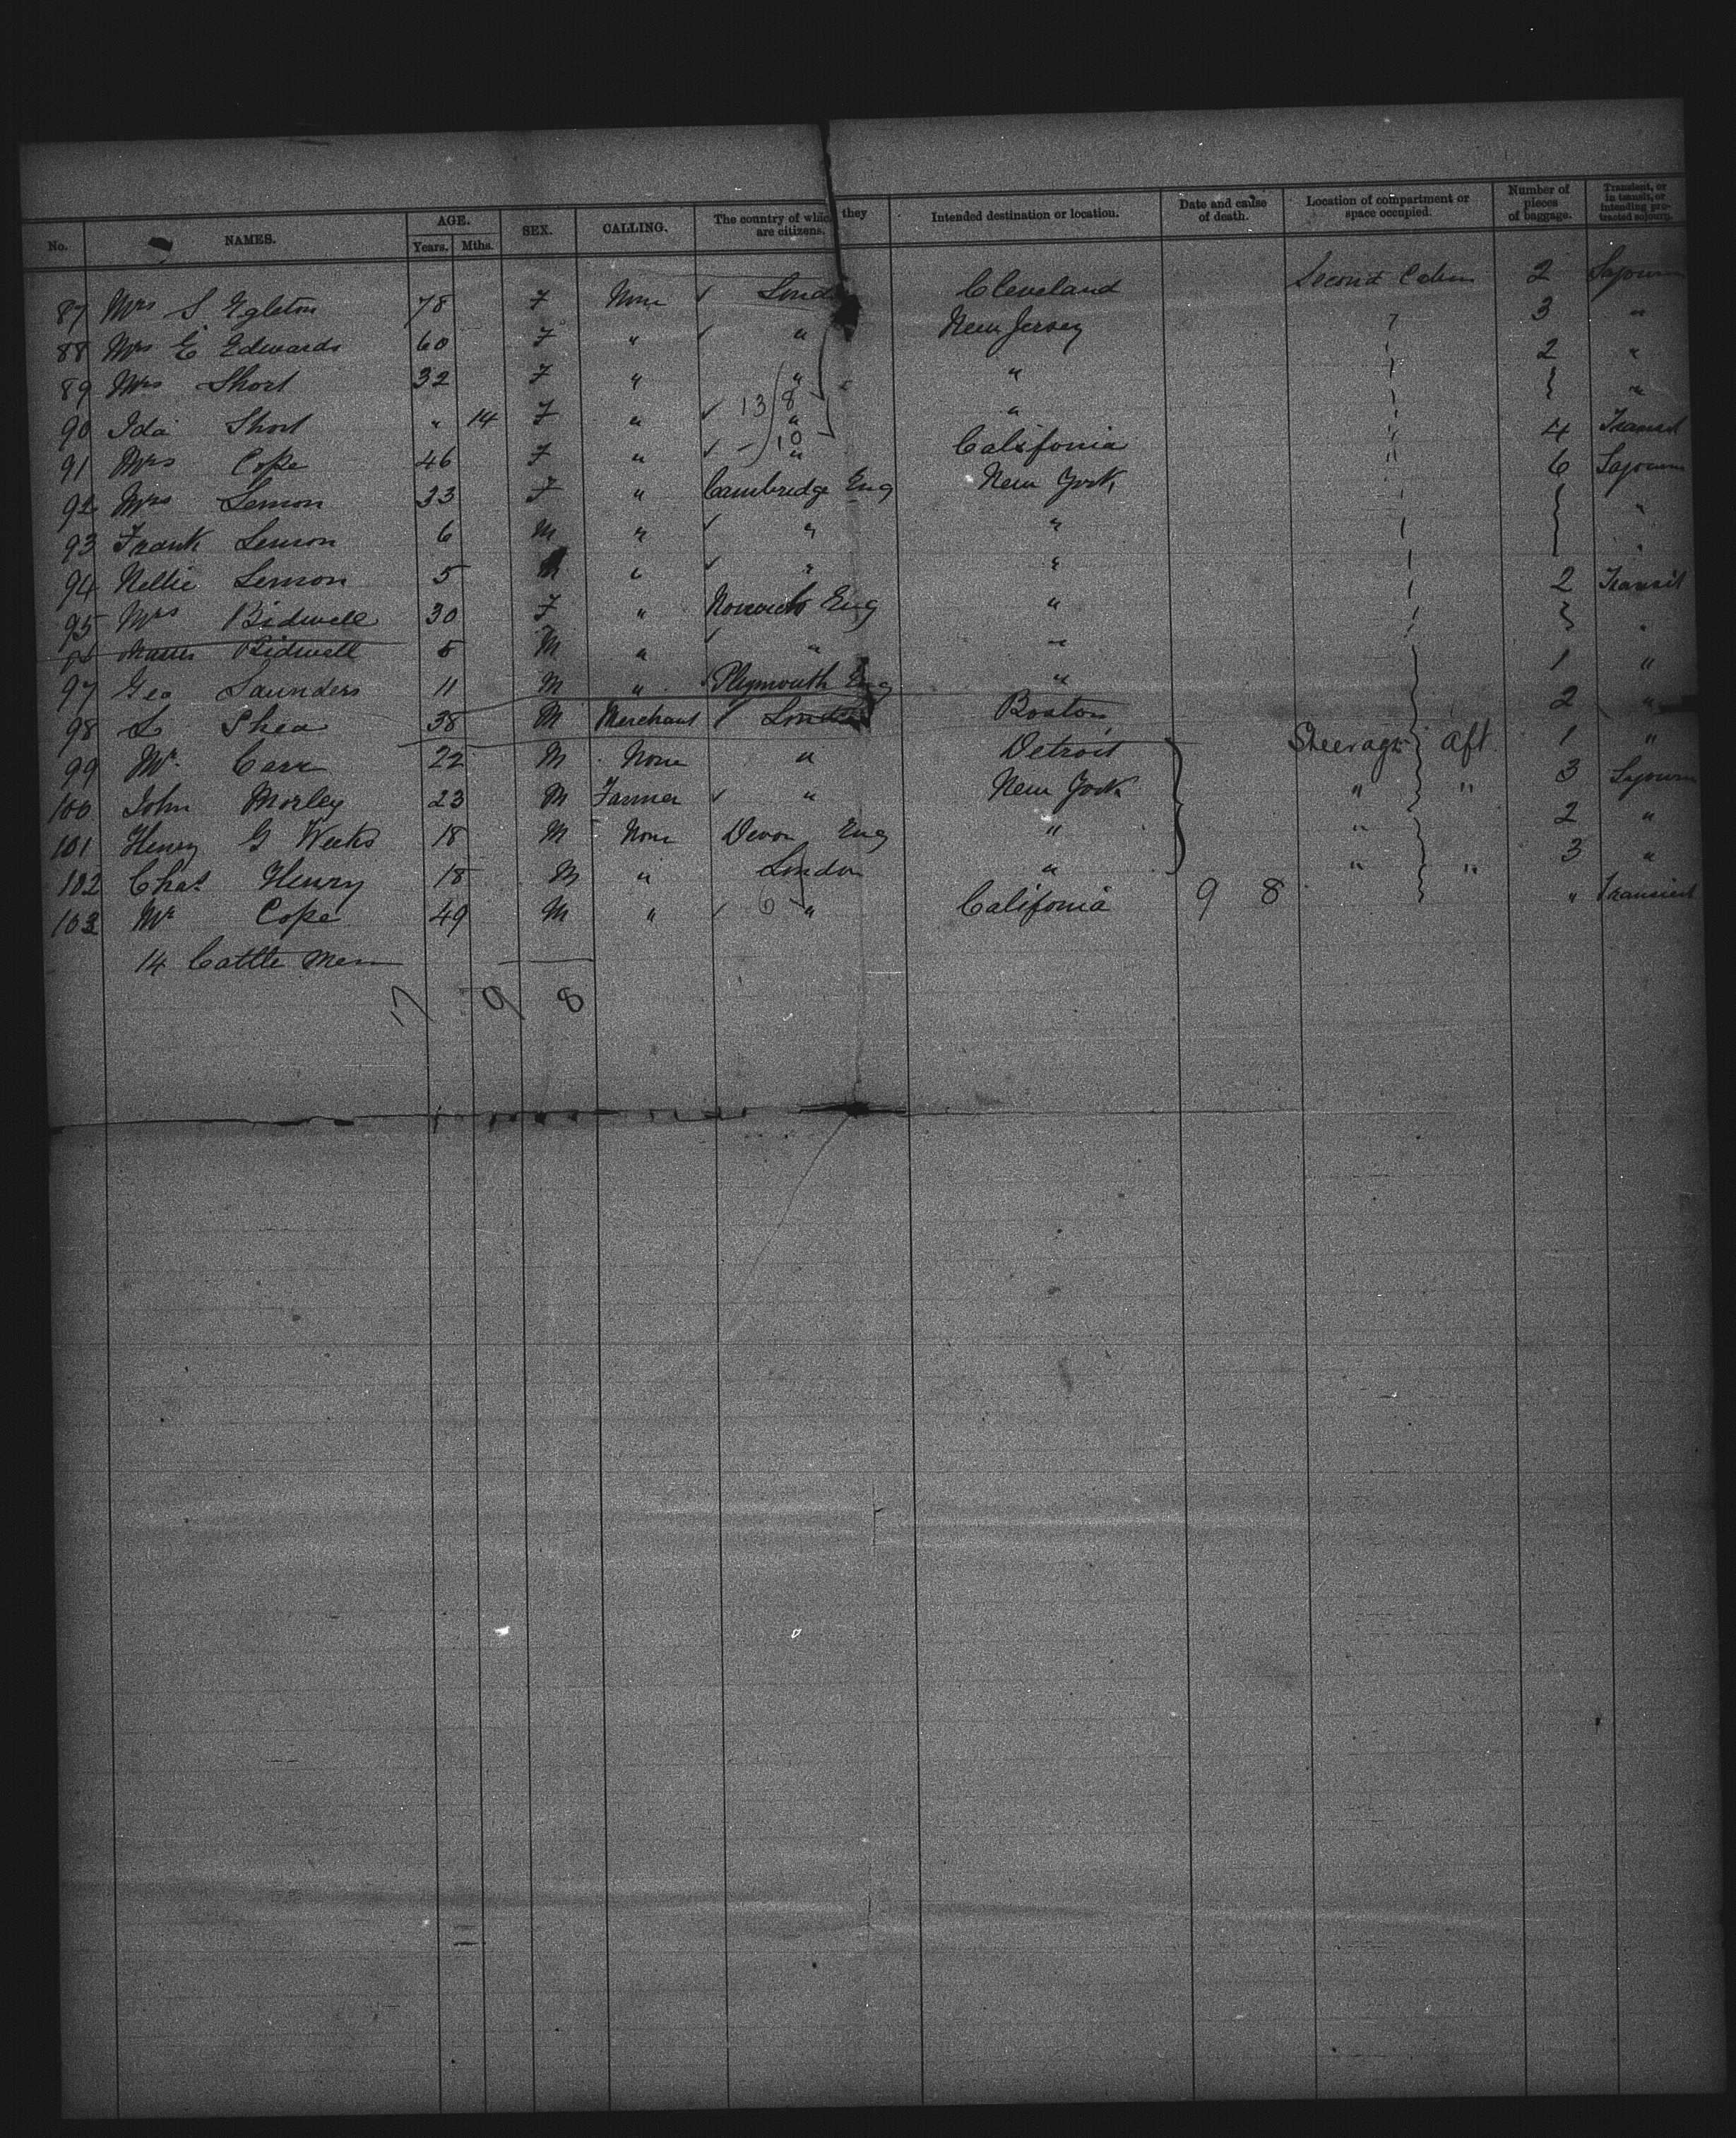 No. NAMES. AGE. Years. Mths. SEX. CALLING. The country of which they are citizens. Intended destination or location. Date and cause of death. Location of compartment or space occupied. Number of pieces of baggage. Transient, or in transit, or intending protracted sojourn.
87 Mrs S Egleton 78 F None ✓ Lond Cleveland Second Cabin 2 Sojourn
88 Mrs E Edwards 60 F " ✓ " New Jersey 3 "
89 Mrs Short 32 F " " " 2 "
90 Ida Short " 14 F " ✓ 13/8 " " "
91 Mrs Cope 46 F " ✓ 10 " Califonia 4 Transit
92 Mrs Lemon 33 F " Cambridge Eng New York 6 Sojourn
93 Frank Lemon 6 M " ✓ " " "
94 Nellie Lemon 5 " ✓ " " "
95 Mrs Bidwell 30 F " Norwich Eng " 2 Transit
96 Master Bidwell 8 M " ✓ " " "
97 Geo Saunders 11 M " Plymouth Eng " 1 "
98 L Shea 38 M Merchant ✓ London Boston 2 "
99 Mr. Carr 22 M None " Detroit Steerage aft. 1 "
100 John Morley 23 M Farmer ✓ " New York " " 3 Sojourn
101 Henry G Weeks 18 M None Devon Eng " " 2 "
102 Chas Henry 18 M " London " " " 3 "
103 Mr Cope 49 M " ✓ 6 " Califonia 9 8 " Transient
14 Cattle Men
17 9 8